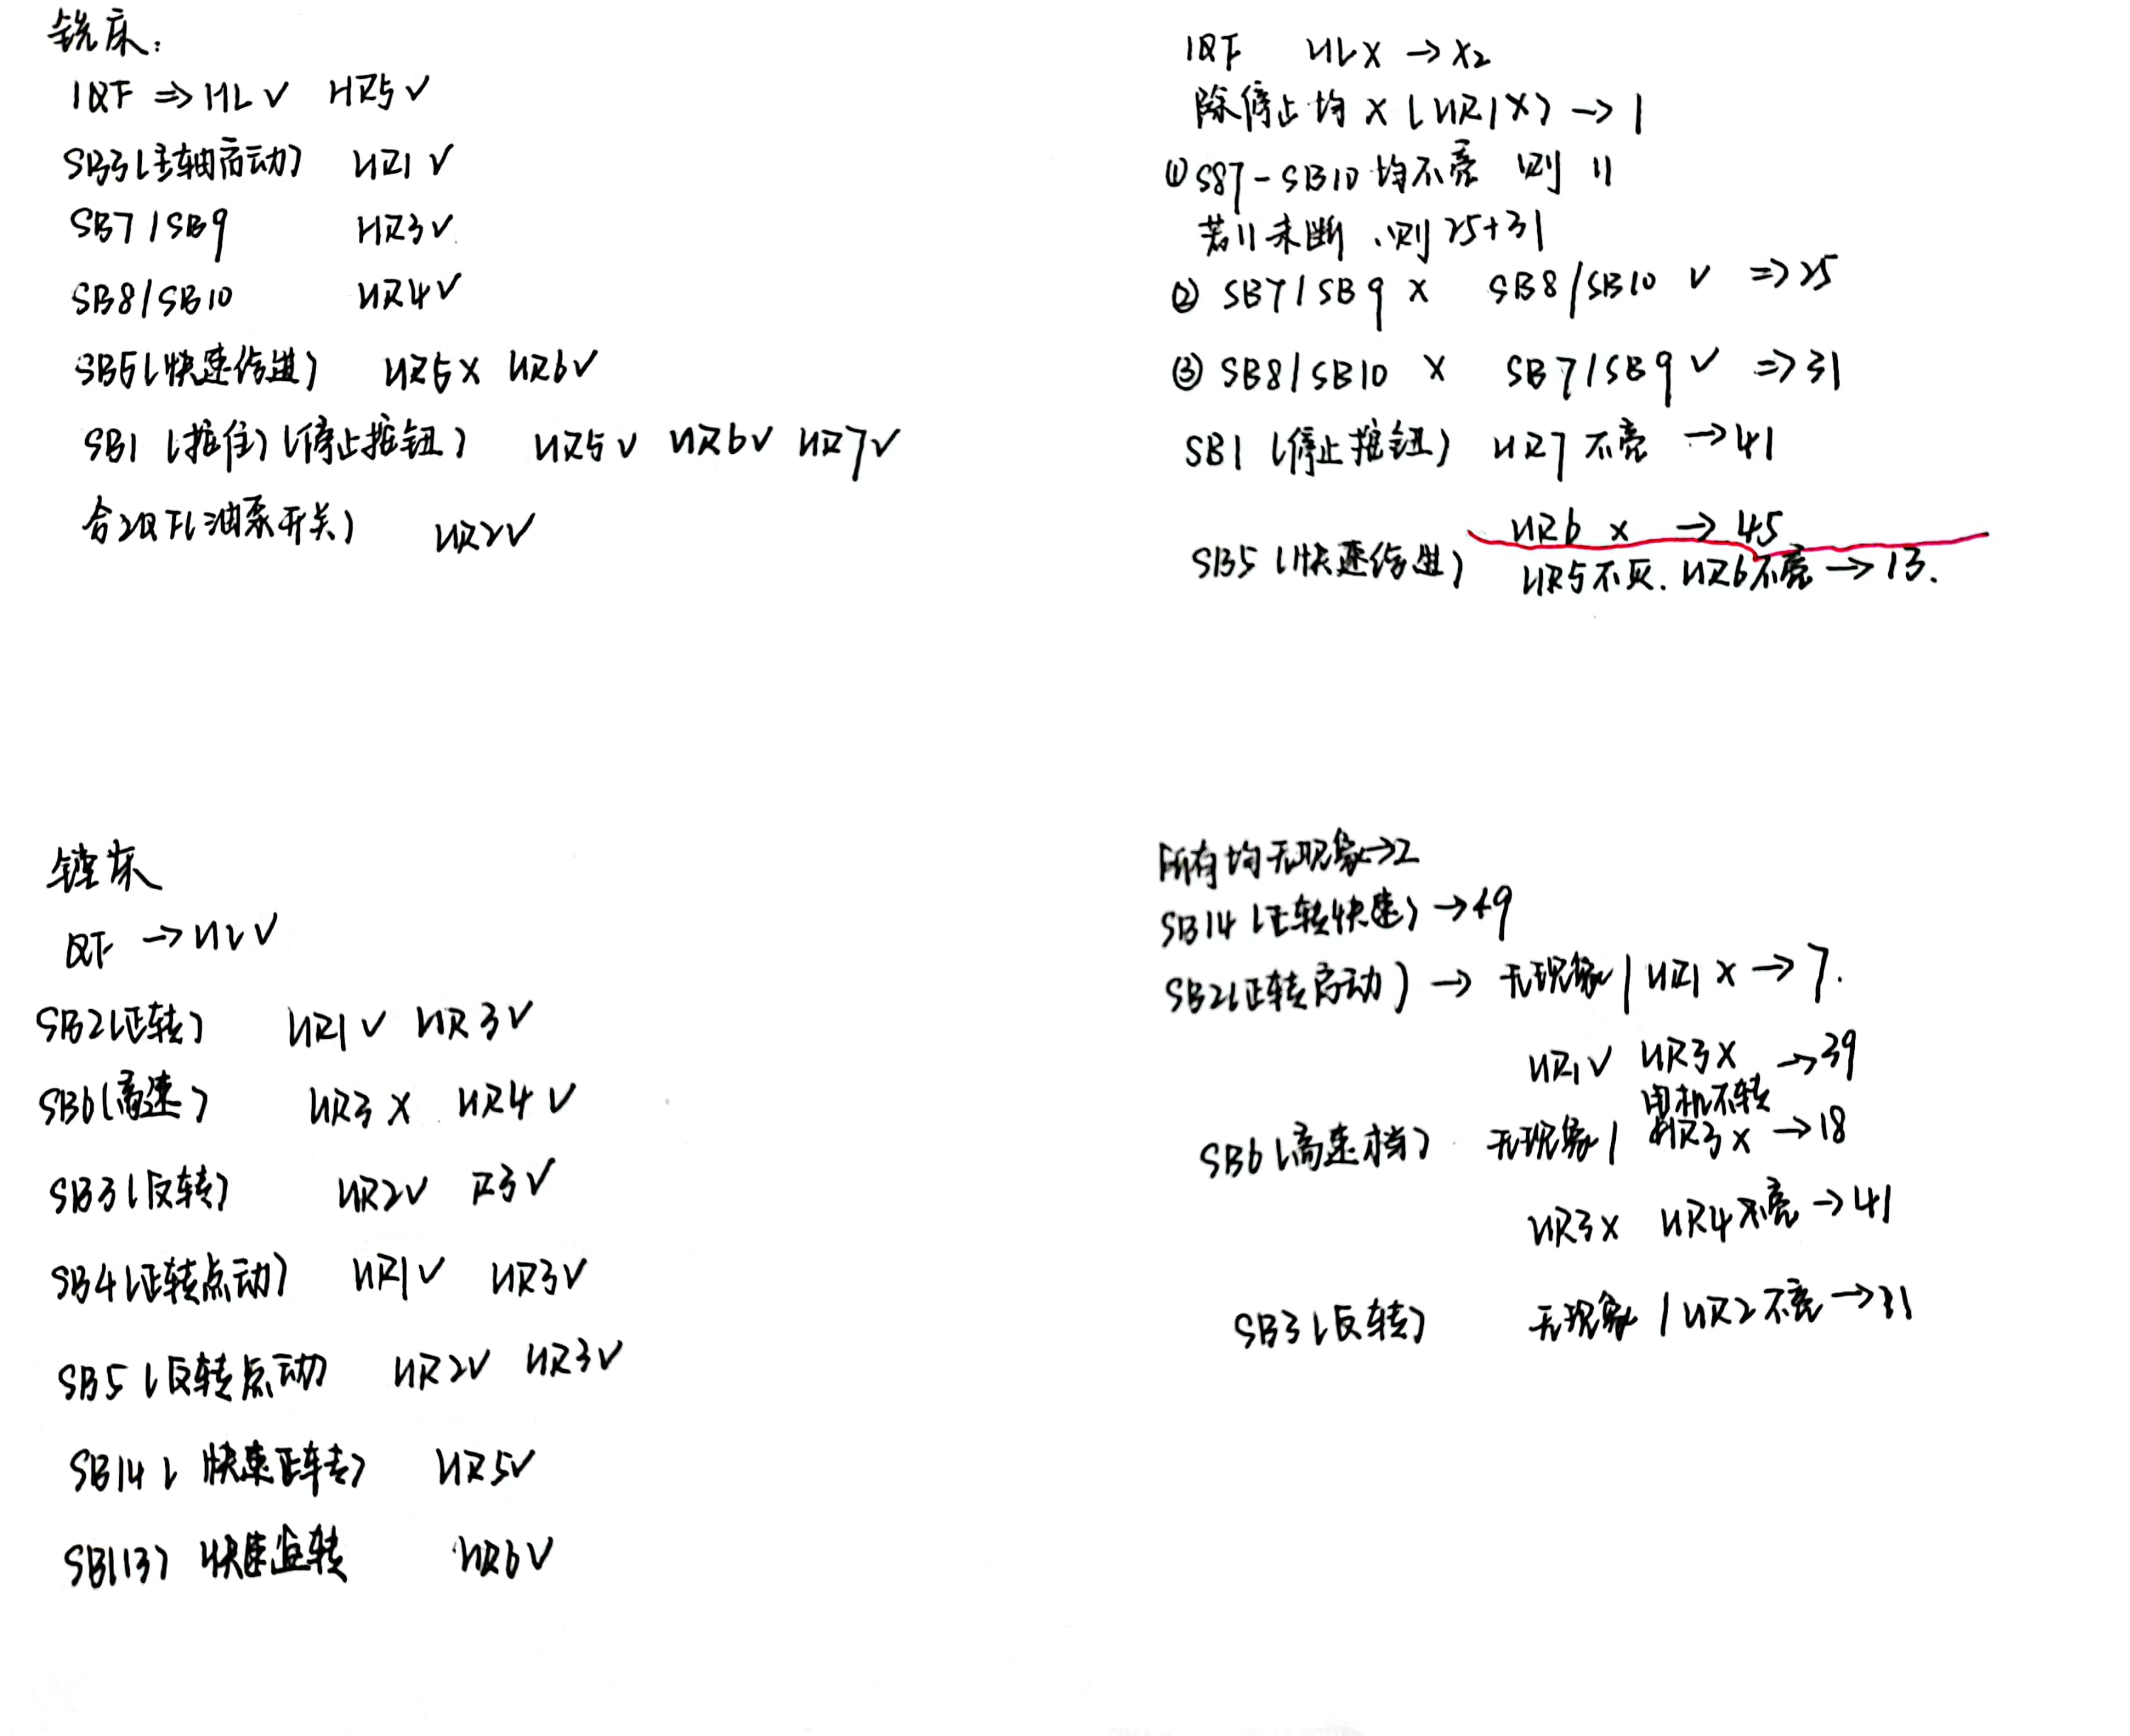 铣床:
1QF => HL √ HR5 √
SB3(主轴启动) HR1 √
SB7/SB9 HR3 √
SB8/SB10 HR4 √
SB5(快速传进) HR5 × HR6 √
SB1 (按住)(停止按钮) HR5 √ HR6 √ HR7 √
合2QF(油泵开关) HR2 √
1QF HL × → X2
除停止均 × (HR1 ×) → 1
① SB7-SB10 均不亮 则 11
若11未断,则 25+31
② SB7/SB9 × SB8/SB10 √ => 25
③ SB8/SB10 × SB7/SB9 √ => 31
SB1 (停止按钮) HR7 不亮 → 41
HR6 × → 45
SB5 (快速传进) HR5不灭. HR6不亮 → 13.
镗床
QF → HL √
SB2(正转) HR1 √ HR3 √
SB6(高速) HR3 × HR4 √
SB3(反转) HR2 √ R3 √
SB4(正转点动) HR1 √ HR3 √
SB5 (反转点动) HR2 √ HR3 √
SB14( 快速正转) HR5 √
SB(13) 快速 转 HR6 √
所有均无现象→2
SB14 (正转快速) → 49
SB2(正转启动) → 无现象 / HR1 × → 7.
HR1 √ HR3 × → 39
电机不转
SB6 (高速档) 无现象 / HR3 × → 18
HR3 × HR4 不亮 → 41
SB3 (反转) 无现象 / HR2 不亮 → 31